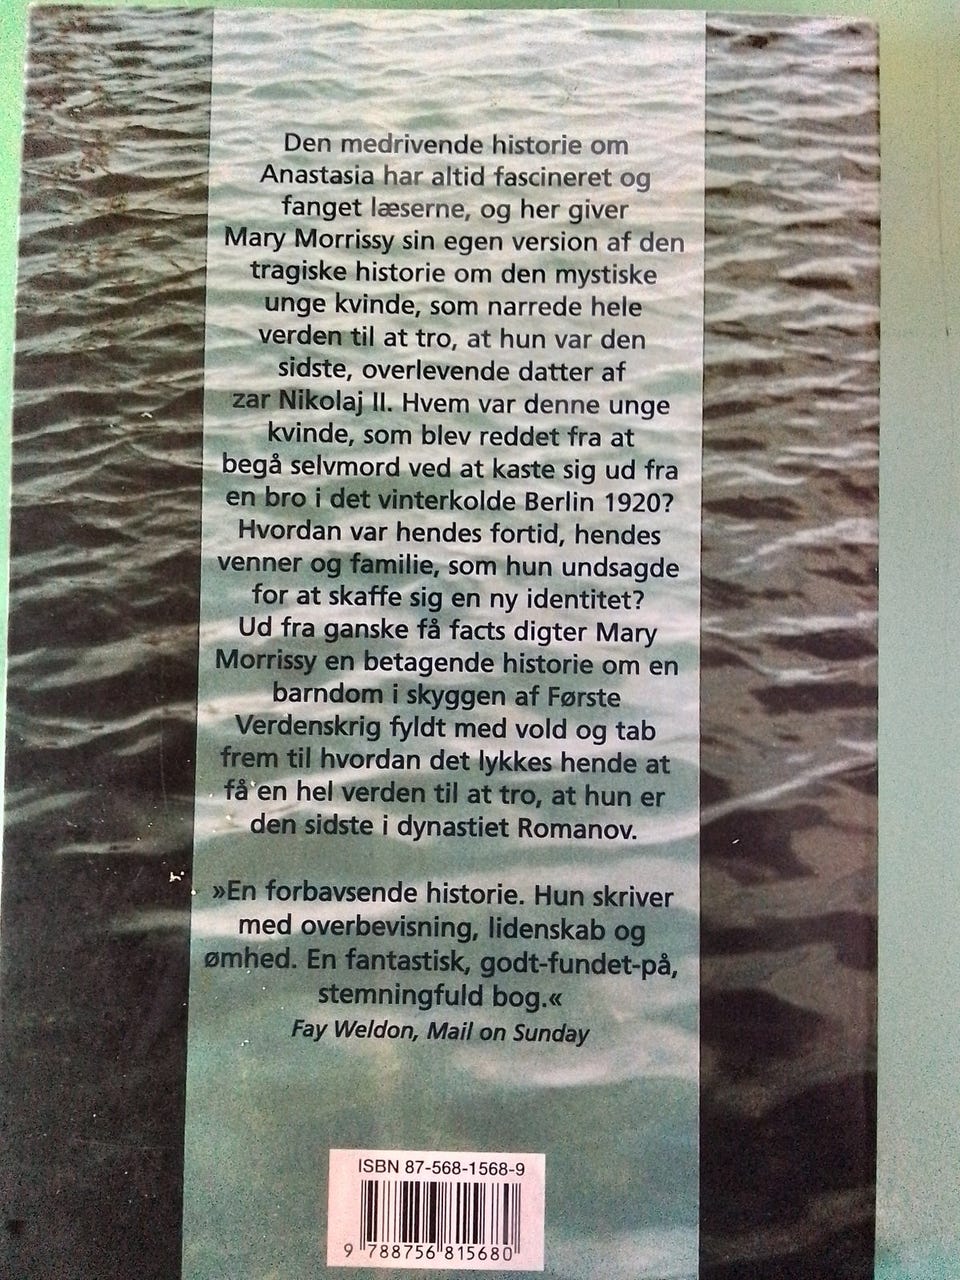 Den medrivende historie om
Anastasia har altid fascineret og
fanget læserne, og her giver
Mary Morrissy sin egen version af den
tragiske historie om den mystiske
unge kvinde, som narrede hele
verden til at tro, at hun var den
sidste, overlevende datter af
zar Nikolaj II. Hvem var denne unge
kvinde, som blev reddet fra at
begå selvmord ved at kaste sig ud fra
en bro i det vinterkolde Berlin 1920?
Hvordan var hendes fortid, hendes
venner og familie, som hun undsagde
for at skaffe sig en ny identitet?
Ud fra ganske få facts digter Mary
Morrissy en betagende historie om en
barndom i skyggen af Første
Verdenskrig fyldt med vold og tab
frem til hvordan det lykkes hende at
få en hel verden til at tro, at hun er
den sidste i dynastiet Romanov.
»En forbavsende historie. Hun skriver
med overbevisning, lidenskab og
ømhed. En fantastisk, godt-fundet-på,
stemningfuld bog.«
Fay Weldon, Mail on Sunday
ISBN 87-568-1568-9
9 788756 815680